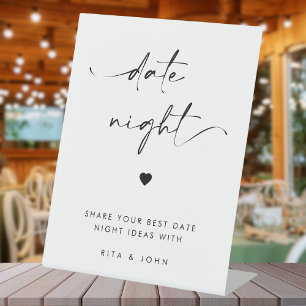 date
night
SHARE YOUR BEST DATE
NIGHT IDEAS WITH
RITA & JOHN